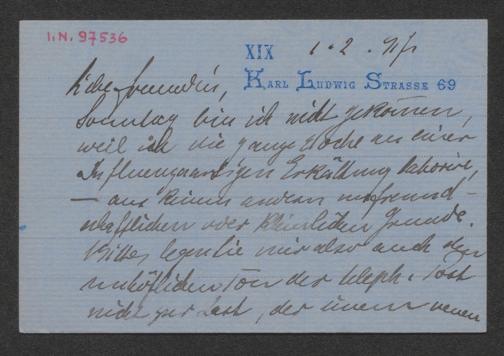 I.N. 97536
XIX
1. 2. 
KARL LUDWIG STRASSE 69
Liebe Freundin,
Sonntag bin ich nicht gekommen,
weil ich die ganze Woche an einer
Influenzaartigen Erkältung laborire,
— aus keinem andern unfreund-
schaftlichen oder kleinlichen Grunde.
Bitte, legen Sie mir also auch den
unhöflichen Ton der teleph. Post
nicht zur Last, der einem neuen